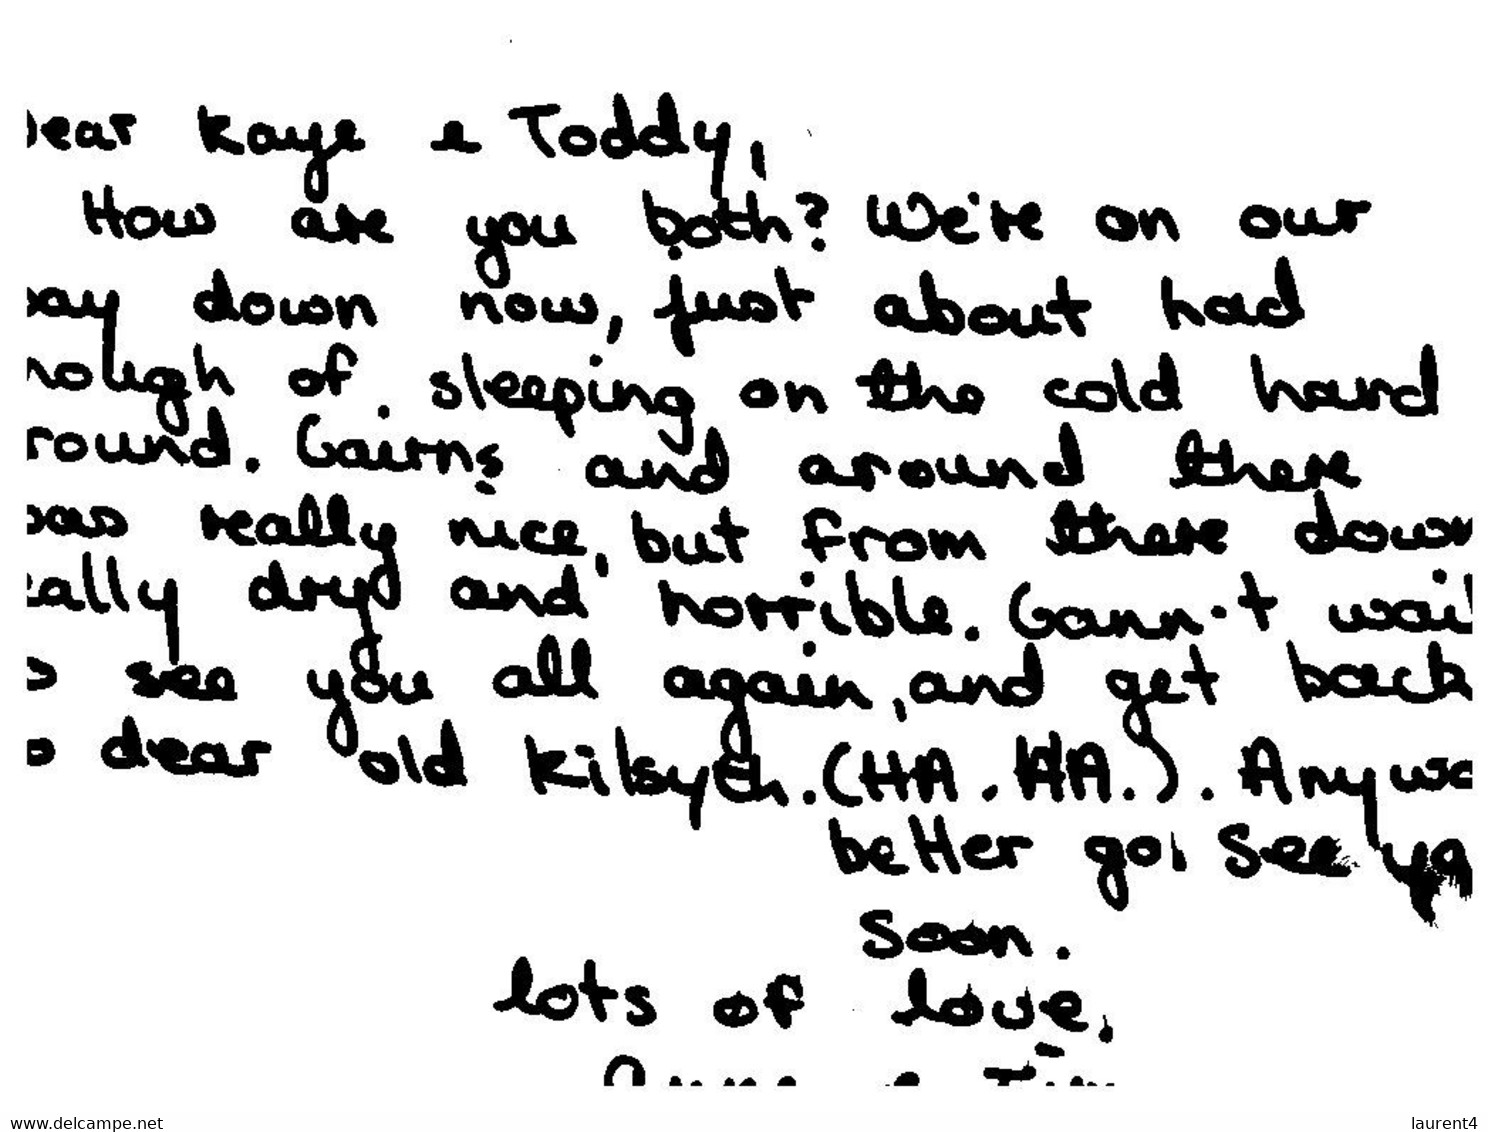 ear Kaye & Toddy,
How are you both? We're on our
ay down now, just about had
nough of sleeping on the cold hard
round. Cairns and around there
was really nice, but from there down
eally dry and horrible. Cann't wait
o see you all again, and get back
o dear old Kilsyth. (HA. HA.). Anywa
better go. See ya
soon.
lots of love,
Anne & Tim
www.delcampe.net
laurent4